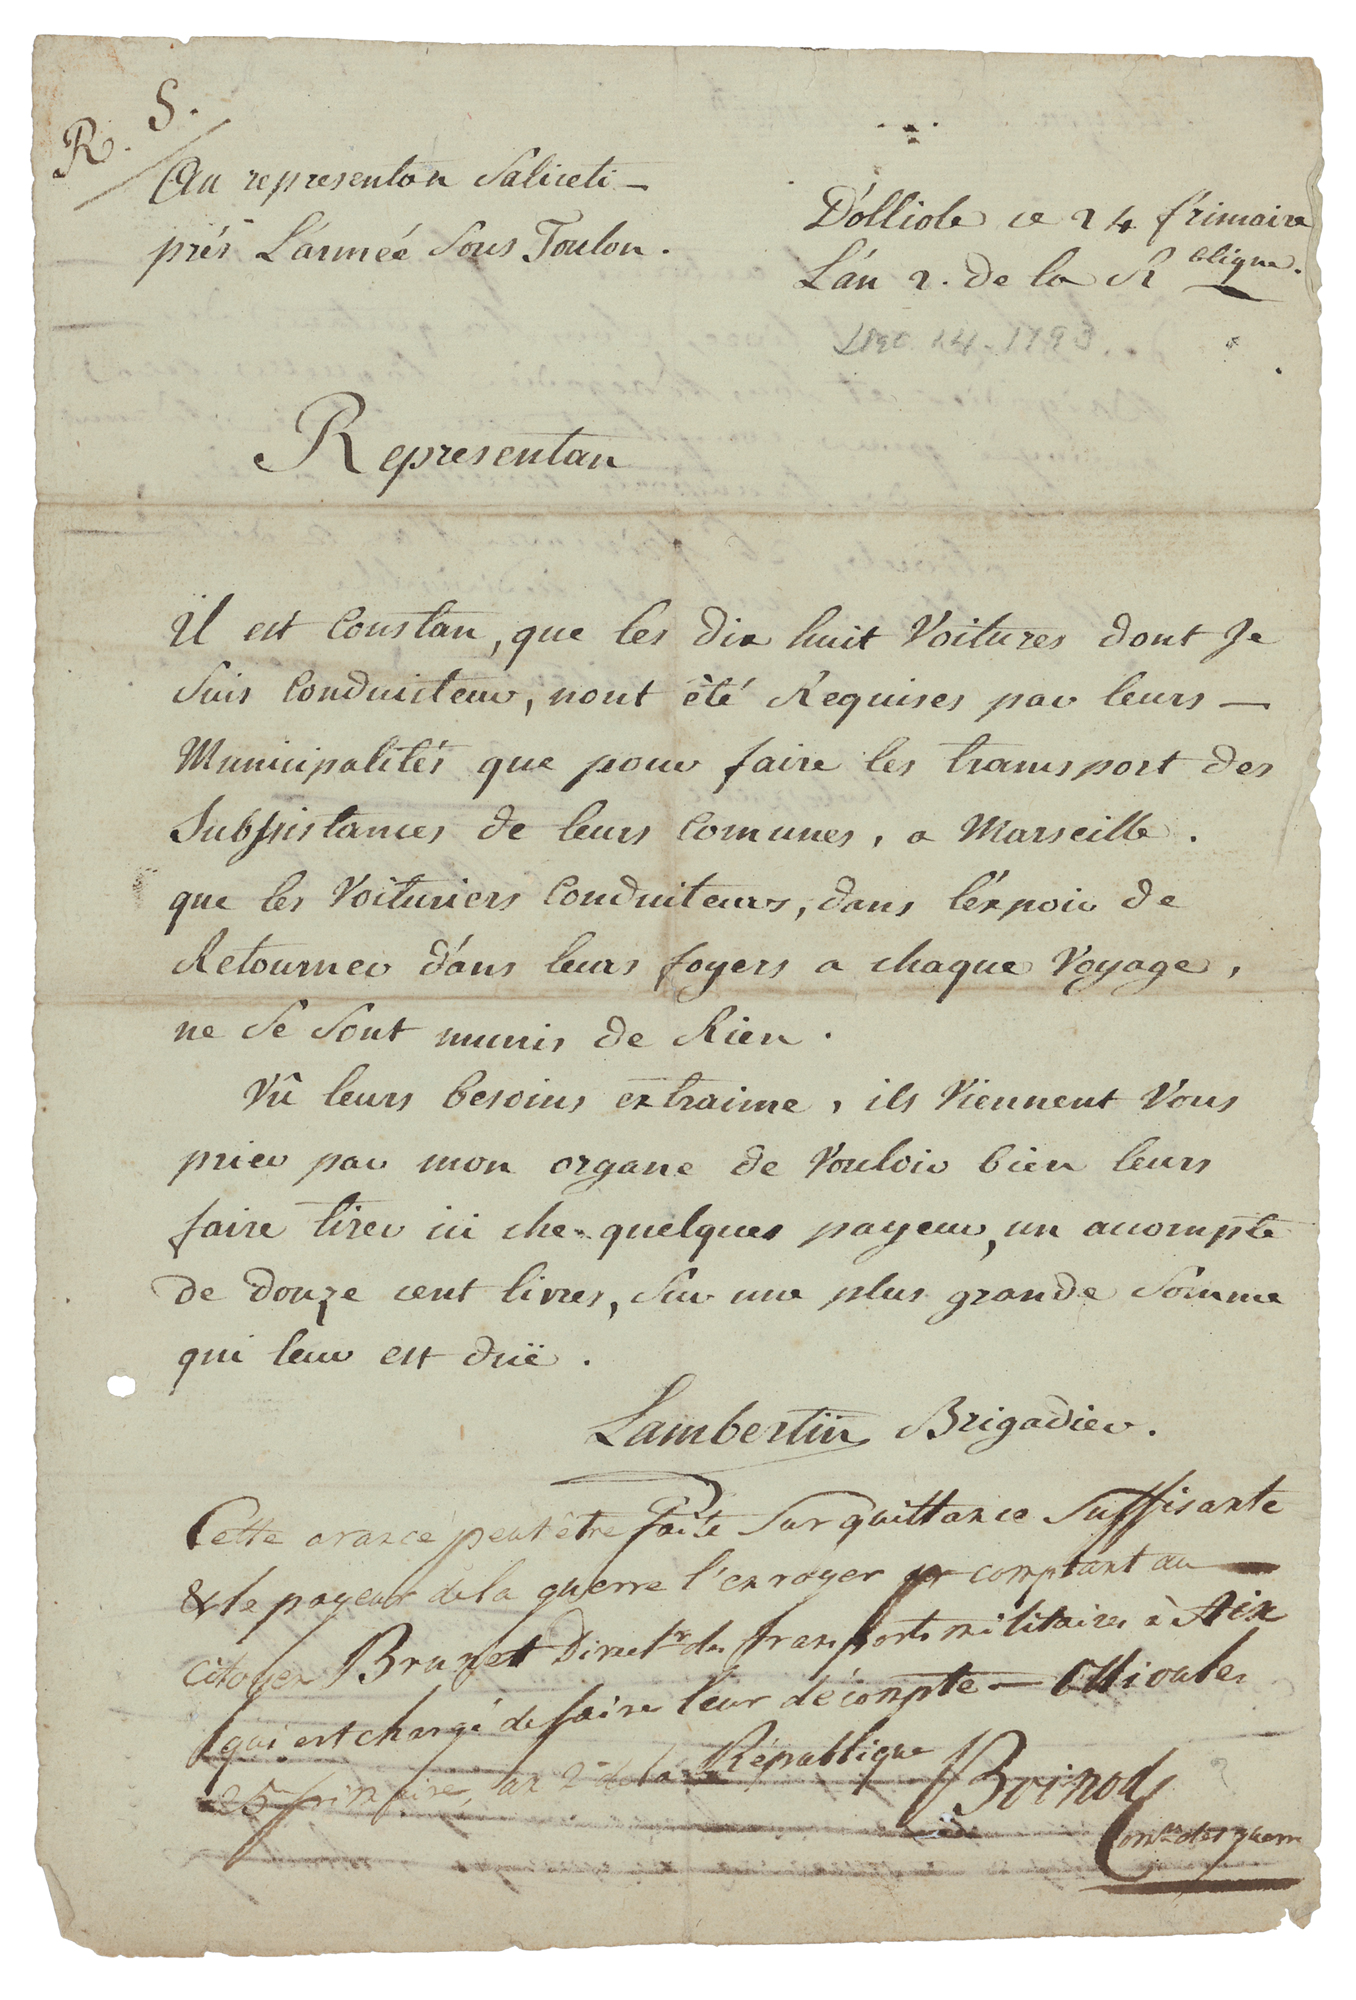 R. S.
Au representan Saliceti —
prés L'armée Sous Toulon.
D'olliole ce 24 frimaire
L'án 2. de la R blique.
Dec. 14. 1793.
Representan
Il est Constan, que les dix huit Voitures dont Je
Suis Conducteur, nont été Requises par leurs —
Municipalités que pour faire les transport des
Subssistances de leurs Comunes, a Marseille.
que les Voituriers Conduiteurs, dans l'éxpoir de
Retourner dans leurs foyers a chaque Voyage,
ne Se Sont munis de Rien.
Vû leurs besoins extraime, ils Viennent Vous
prier par mon organe de Vouloir bien leurs
faire tirer ici che quelques payeur, un acompte
de douze cent livres, Sur une plus grande Somme
qui leur est duë.
Lambertin Brigadier.
Cette avance peut être faite Sur quittance Suffisante
& le payeur de la guerre l'envoyer pr comptant au
citoyen Brunet Direct.r des transports militaires à Aix
qui est chargé de faire leur décompte — Ollioules
25 frimaire, an 2e de la République
Boinod
Comre des guerres